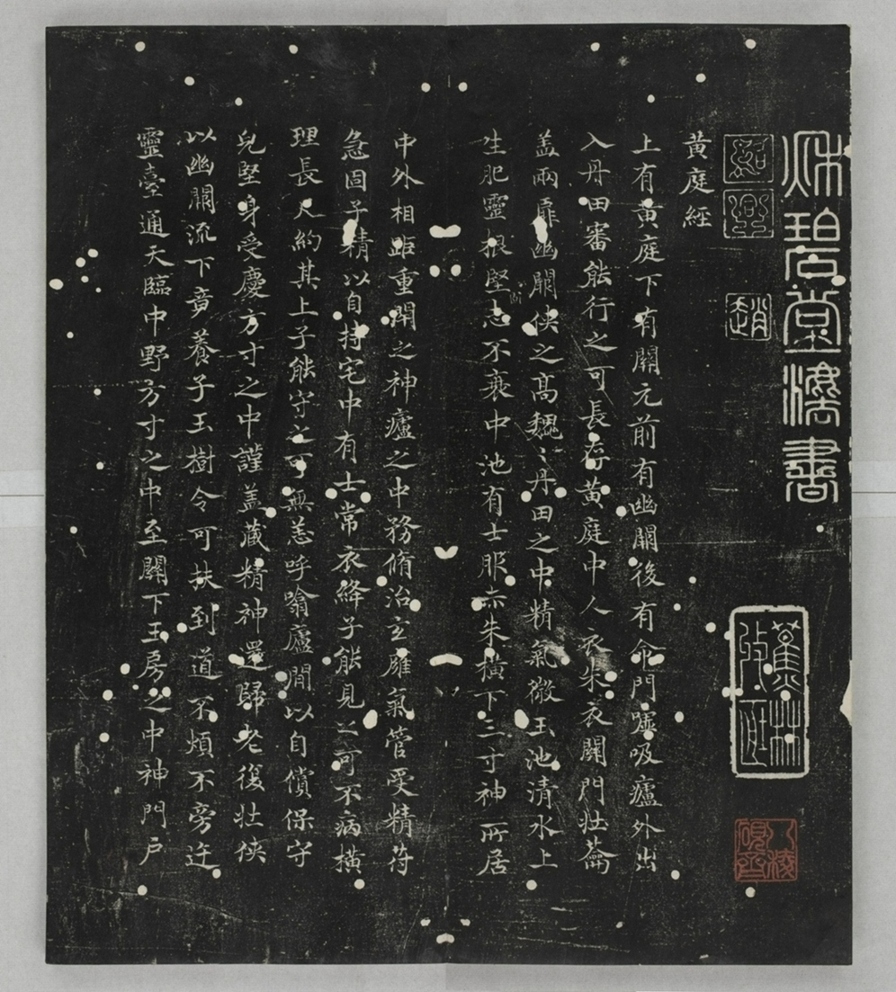 秋碧堂灋書
紹興
趙
黃庭經
上有黃庭下有關元前有幽闕後有命門噓吸廬外出
入丹田審能行之可長存黃庭中人衣朱衣關門壯蘥
蓋兩扉幽闕俠之高魏〻丹田之中精氣微玉池清水上
生肥靈根堅志不衰中池有士服赤朱橫下三寸神所居
中外相距重閉之神廬之中務脩治玄膺氣管受精苻
急固子精以自持宅中有士常衣絳子能見之可不病橫
理長尺約其上子能守之可無恙呼噏廬間以自償保守
皃堅身受慶方寸之中謹蓋藏精神還歸老復壯俠
以幽闕流下竟養子玉樹令可扶到道不煩不旁迕
靈臺通天臨中野方寸之中至關下玉房之中神門戶
蕉林
八棱硯齋